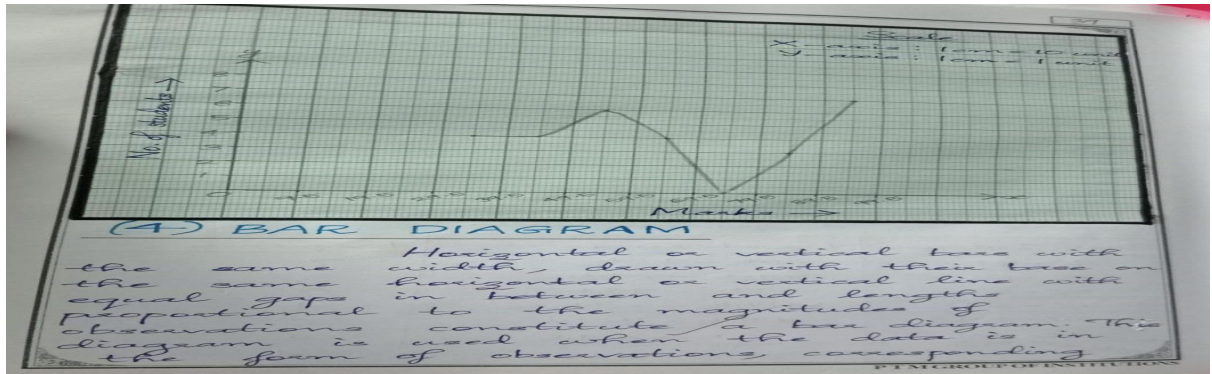 37
Scale
X-axis : 1cm = 10 unit
Y-axis : 1cm = 1 unit
y
No. of students →
0 10 20 30 40 50 60 70 80 90 x
Marks →
(4) BAR DIAGRAM
Horizontal or vertical bars with
the same width, drawn with their base on
the same horizontal or vertical line with
equal gaps in between and lengths
proportional to the magnitudes of
observations constitute a bar diagram. This
diagram is used when the data is in
the form of observations, corresponding
P T M GROUP OF INSTITUTIONS